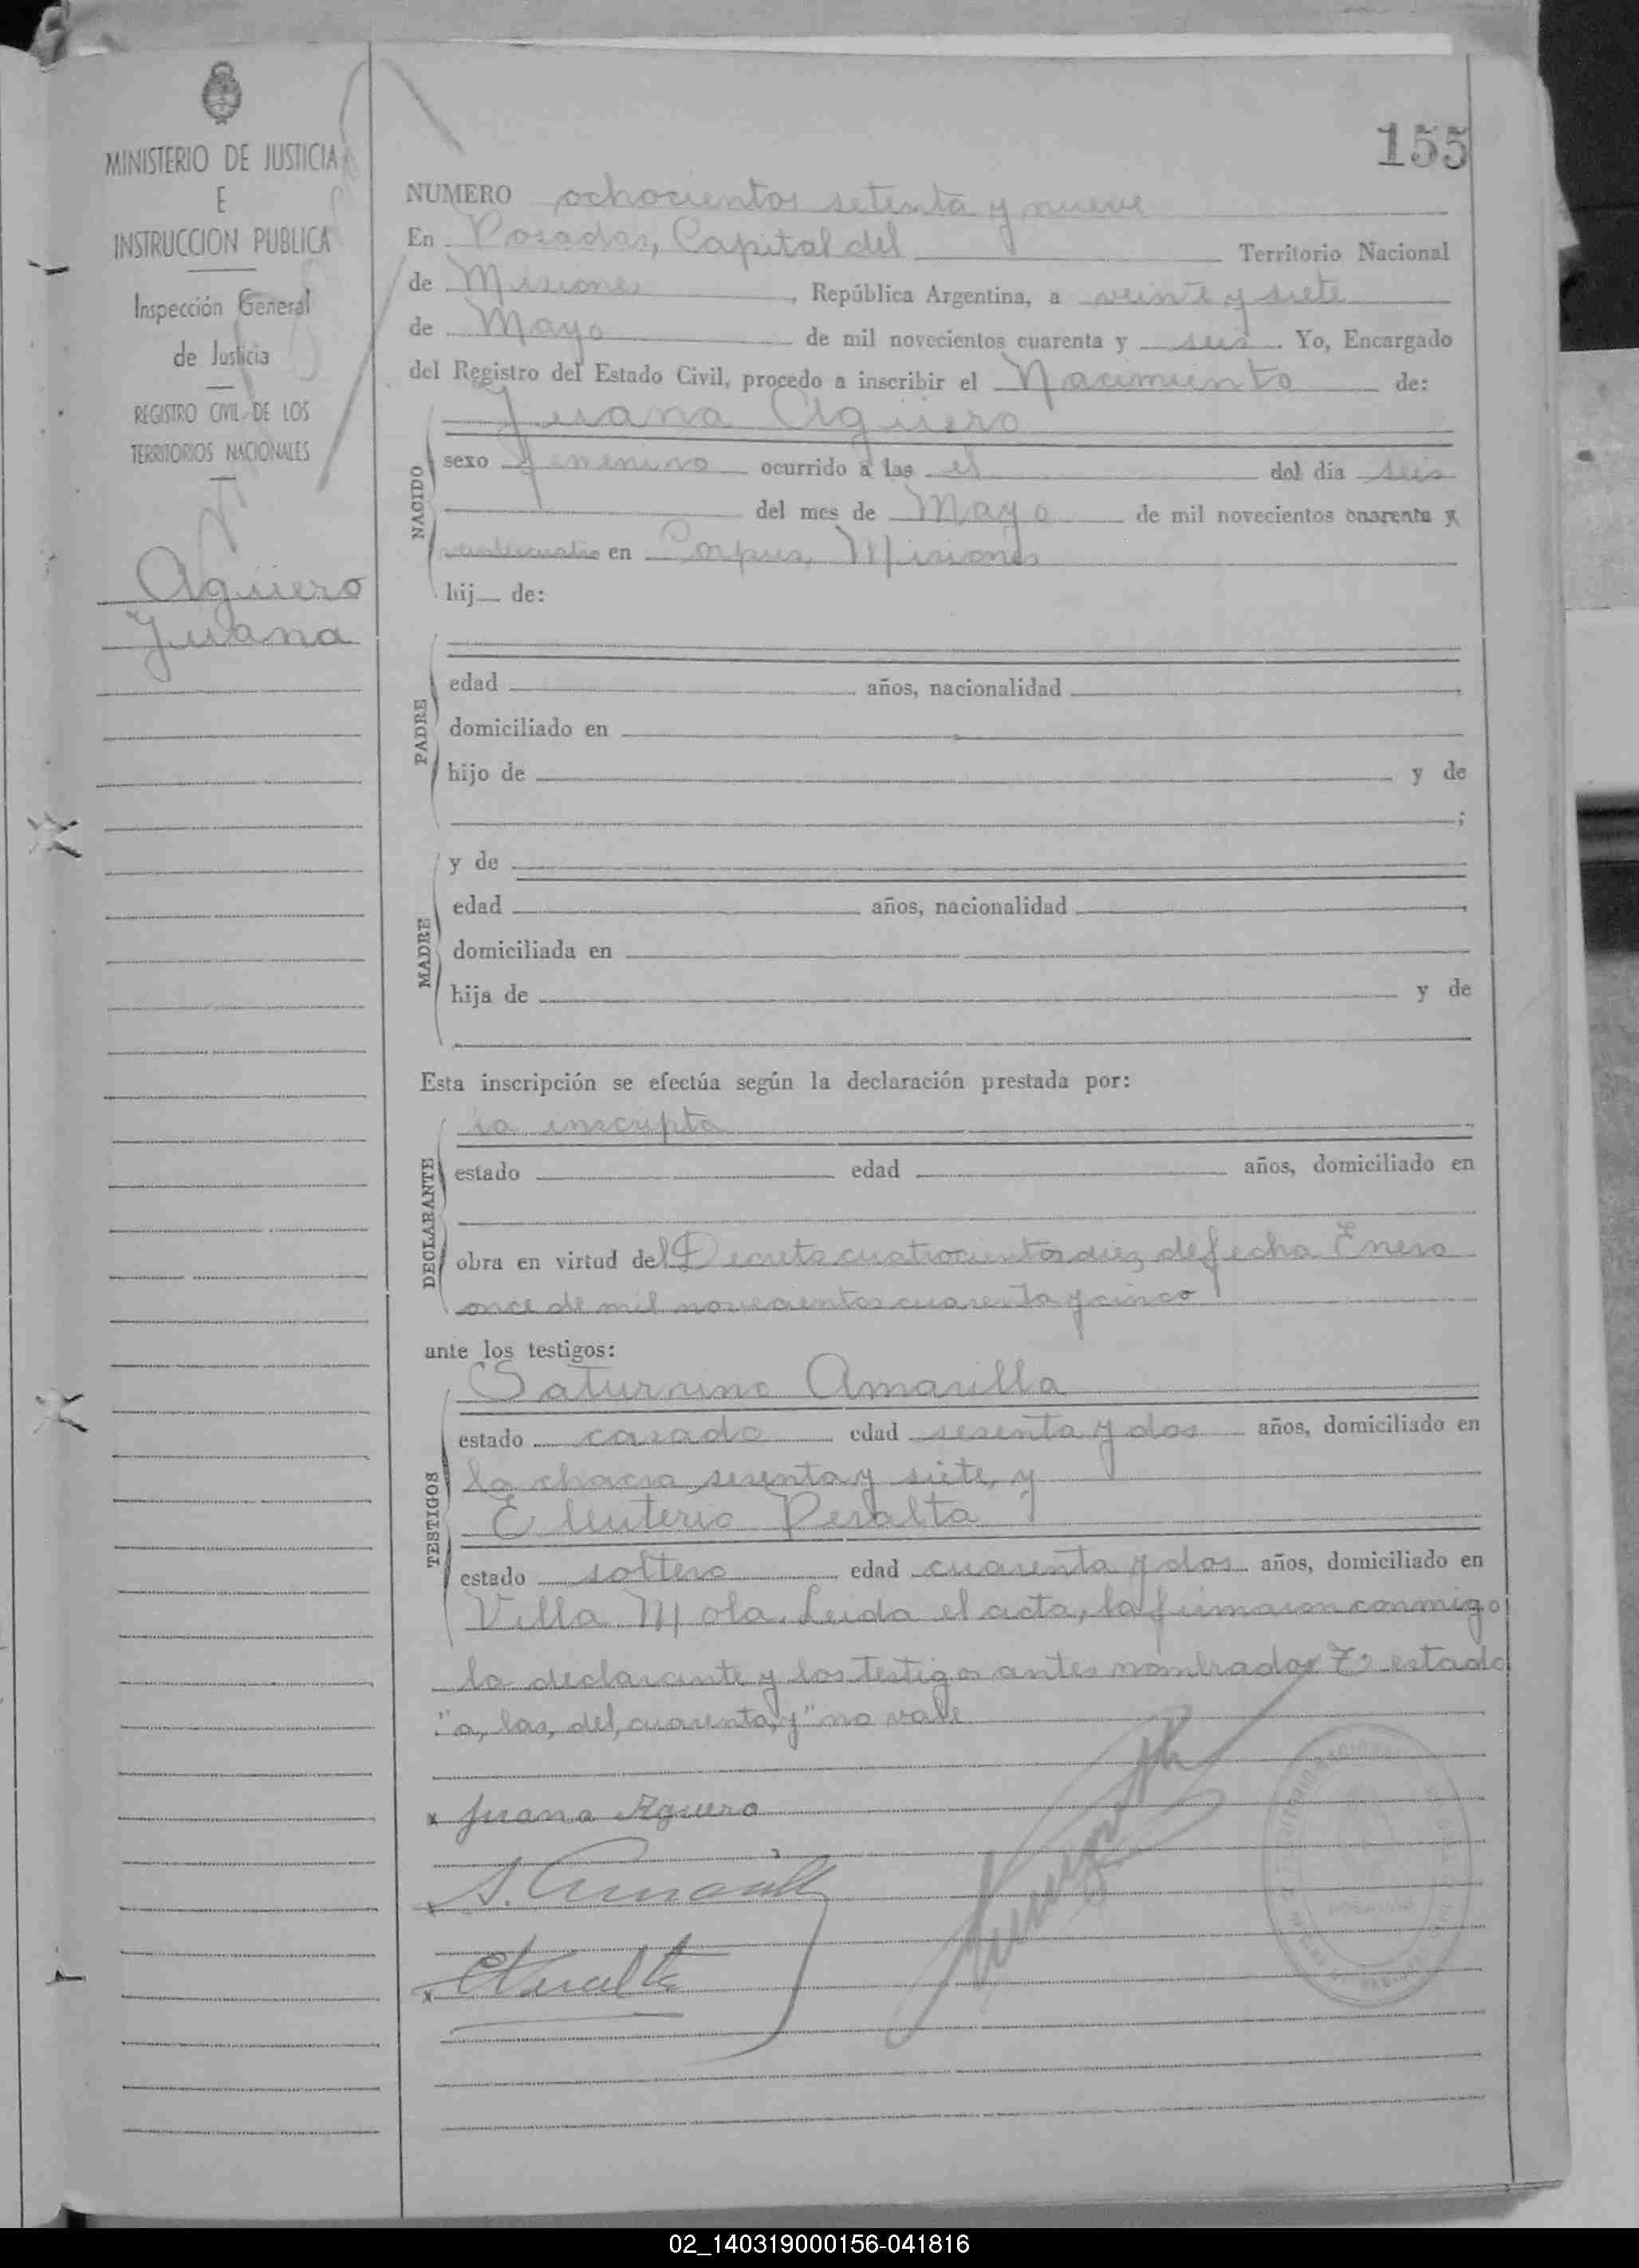 155
MINISTERIO DE JUSTICIA
E
INSTRUCCION PUBLICA
Inspección General
de Justicia
REGISTRO CIVIL DE LOS
TERRITORIOS NACIONALES
Agüero
Juana
NUMERO ochocientos setenta y nueve
En Posadas, Capital del Territorio Nacional
de Misiones, República Argentina, a veinte y siete
de Mayo de mil novecientos cuarenta y seis. Yo, Encargado
del Registro del Estado Civil, procedo a inscribir el Nacimiento de:
NACIDO
Juana Agüero
sexo femenino ocurrido a las el del día seis
del mes de Mayo de mil novecientos cuarenta y
veinticuatro en Corpus, Misiones
hij de:
PADRE
edad años, nacionalidad
domiciliado en
hijo de y de
;
MADRE
y de
edad años, nacionalidad
domiciliada en
hija de y de
Esta inscripción se efectúa según la declaración prestada por:
DECLARANTE
la inscripta
estado edad años, domiciliado en
obra en virtud del Decreto cuatrocientos diez de fecha Enero
once de mil novecientos cuarenta y cinco
ante los testigos:
TESTIGOS
Saturnino Amarilla
estado casado edad sesenta y dos años, domiciliado en
la chacra sesenta y siete, y
Eleuterio Peralta
estado soltero edad cuarenta y dos años, domiciliado en
Villa Mola. Leida el acta, la firmaron conmigo
la declarante y los testigos antes nombrados To estado
"a, las, del, cuarenta, y" no vale
x Juana Aguero
x S. Amarilla
x E Peralta
02_140319000156-041816